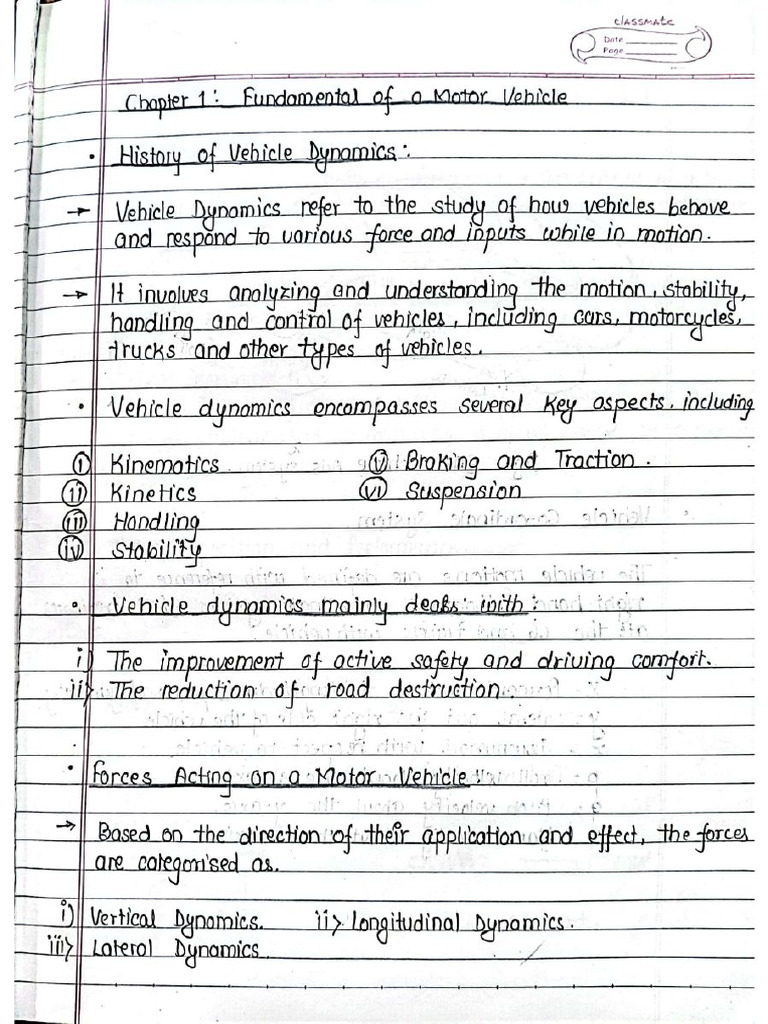 classmate
Date
Page
Chapter 1: Fundamental of a Motor Vehicle
• History of Vehicle Dynamics:
→ Vehicle Dynamics refer to the study of how vehicles behave
and respond to various force and inputs while in motion.
→ It involves analyzing and understanding the motion, stability,
handling and control of vehicles, including cars, motorcycles,
trucks and other types of vehicles.
• Vehicle dynamics encompasses several key aspects, including
i) Kinematics v) Braking and Traction.
ii) Kinetics vi) Suspension
iii) Handling
iv) Stability
• Vehicle dynamics mainly deals with:
i) The improvement of active safety and driving comfort.
ii) The reduction of road destruction.
• Forces Acting on a Motor Vehicle:
→ Based on the direction of their application and effect, the forces
are categorised as.
i) Vertical Dynamics. ii) Longitudinal Dynamics.
iii) Lateral Dynamics.